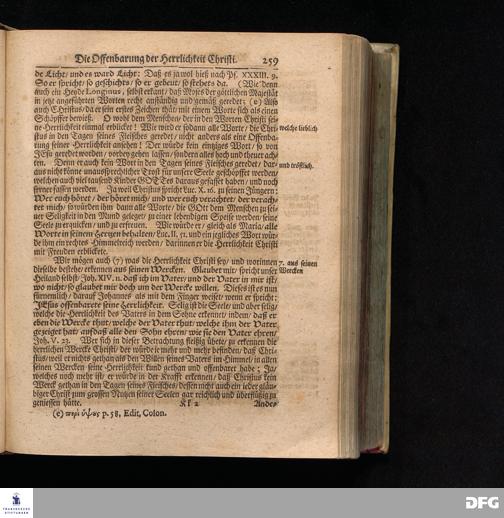 Die Offenbarung der Herrlichkeit Christi. 259
de Licht/ und es ward Licht: Daß es ja wol hieß nach Ps. XXXIII. 9.
So er spricht/ so geschichts/ so er gebeut/ so stehets da. (Wie denn
auch ein Heyde Longinus, selbst erkant/ daß Moses der göttlichen Majestät
in jetzt angeführten Worten recht anständig und gemäß geredet: (e) Also
auch Christus/ da er sein erstes Zeichen thät/ mit einem Worte sich als einen
Schöpffer bewieß. O wohl dem Menschen/ der in den Worten Christi sei-
ne Herrlichkeit einmal erblickt! Wie wird er sodann alle Worte/ die Chri-
stus in den Tagen seines Fleisches geredet/ nicht anders als eine Offenba-
rung seiner Herrlichkeit ansehen! Der würde kein eintziges Wort/ so von
JEsu geredet worden/ vorbey gehen lassen/ sondern alles hoch und theuer ach-
ten. Denn er auch kein Wort in den Tagen seines Fleisches geredet/ dar-
aus nicht könne unaussprechlicher Trost für unsere Seele geschöpffet werden/
welchen auch viel tausend Kinder GOTTes daraus geschöpffet haben/ und noch
ferner fassen werden. Ja weil Christus spricht Luc. X. 16. zu seinen Jüngern:
Wer euch höret/ der höret mich/ und wer euch verachtet/ der verach-
tet mich/ so würden ihm dann alle Worte/ die GOtt dem Menschen zu sei-
ner Seligkeit in den Mund geleget/ zu einer lebendigen Speise werden/ seine
Seele zu erquicken/ und zu erfreuen. Wie würde er/ gleich als Maria/ alle
Worte in seinem Hertzen behalten/ Luc. II, 51. und ein jegliches Wort wür-
de ihm ein rechtes Himmelreich werden/ darinnen er die Herrlichkeit Christi
mit Freuden erblickte.
welche lieblich
und tröstlich.
Wir mögen auch (7) was die Herrlichkeit Christi sey/ und worinnen
dieselbe bestehe/ erkennen aus seinen Wercken. Glaubet mir/ spricht unser
Heiland selbst/ Joh. XIV. 11. daß ich im Vater/ und der Vater in mir ist/
wo nicht/ so glaubet mir doch um der Wercke willen. Dieses ist es nun
fürnemlich/ darauf Johannes als mit dem Finger weiset/ wenn er spricht:
JEsus offenbarete seine Herrlichkeit. Selig ist die Seele/ und aber selig/
welche die Herrlichkeit des Vaters in dem Sohne erkennet/ indem/ daß er
eben die Wercke thut/ welche der Vater thut/ welche ihm der Vater
gezeiget hat/ auf daß alle den Sohn ehren/ wie sie den Vater ehren/
Joh. V. 23. Wer sich in dieser Betrachtung fleißig übete/ zu erkennen die
herrlichen Wercke Christi/ der würde je mehr und mehr befinden/ daß Chri-
stus/ weil er nichts gethan als den Willen seines Vaters im Himmel/ in allen
seinen Wercken seine Herrlichkeit kund gethan und offenbaret habe; Ja/
welches noch mehr ist/ er würde in der Krafft erkennen/ daß Christus kein
Werck gethan in den Tagen seines Fleisches/ dessen nicht auch ein jeder gläu-
biger Christ zum grossen Nutzen seiner Seelen gar reichlich und überflüßig zu
geniessen hätte.
7. aus seinen
Wercken
Kk 2 Andes
(e) περὶ ὕψους p. 58, Edit, Colon.
FRANCKESCHE
STIFTUNGEN
DFG